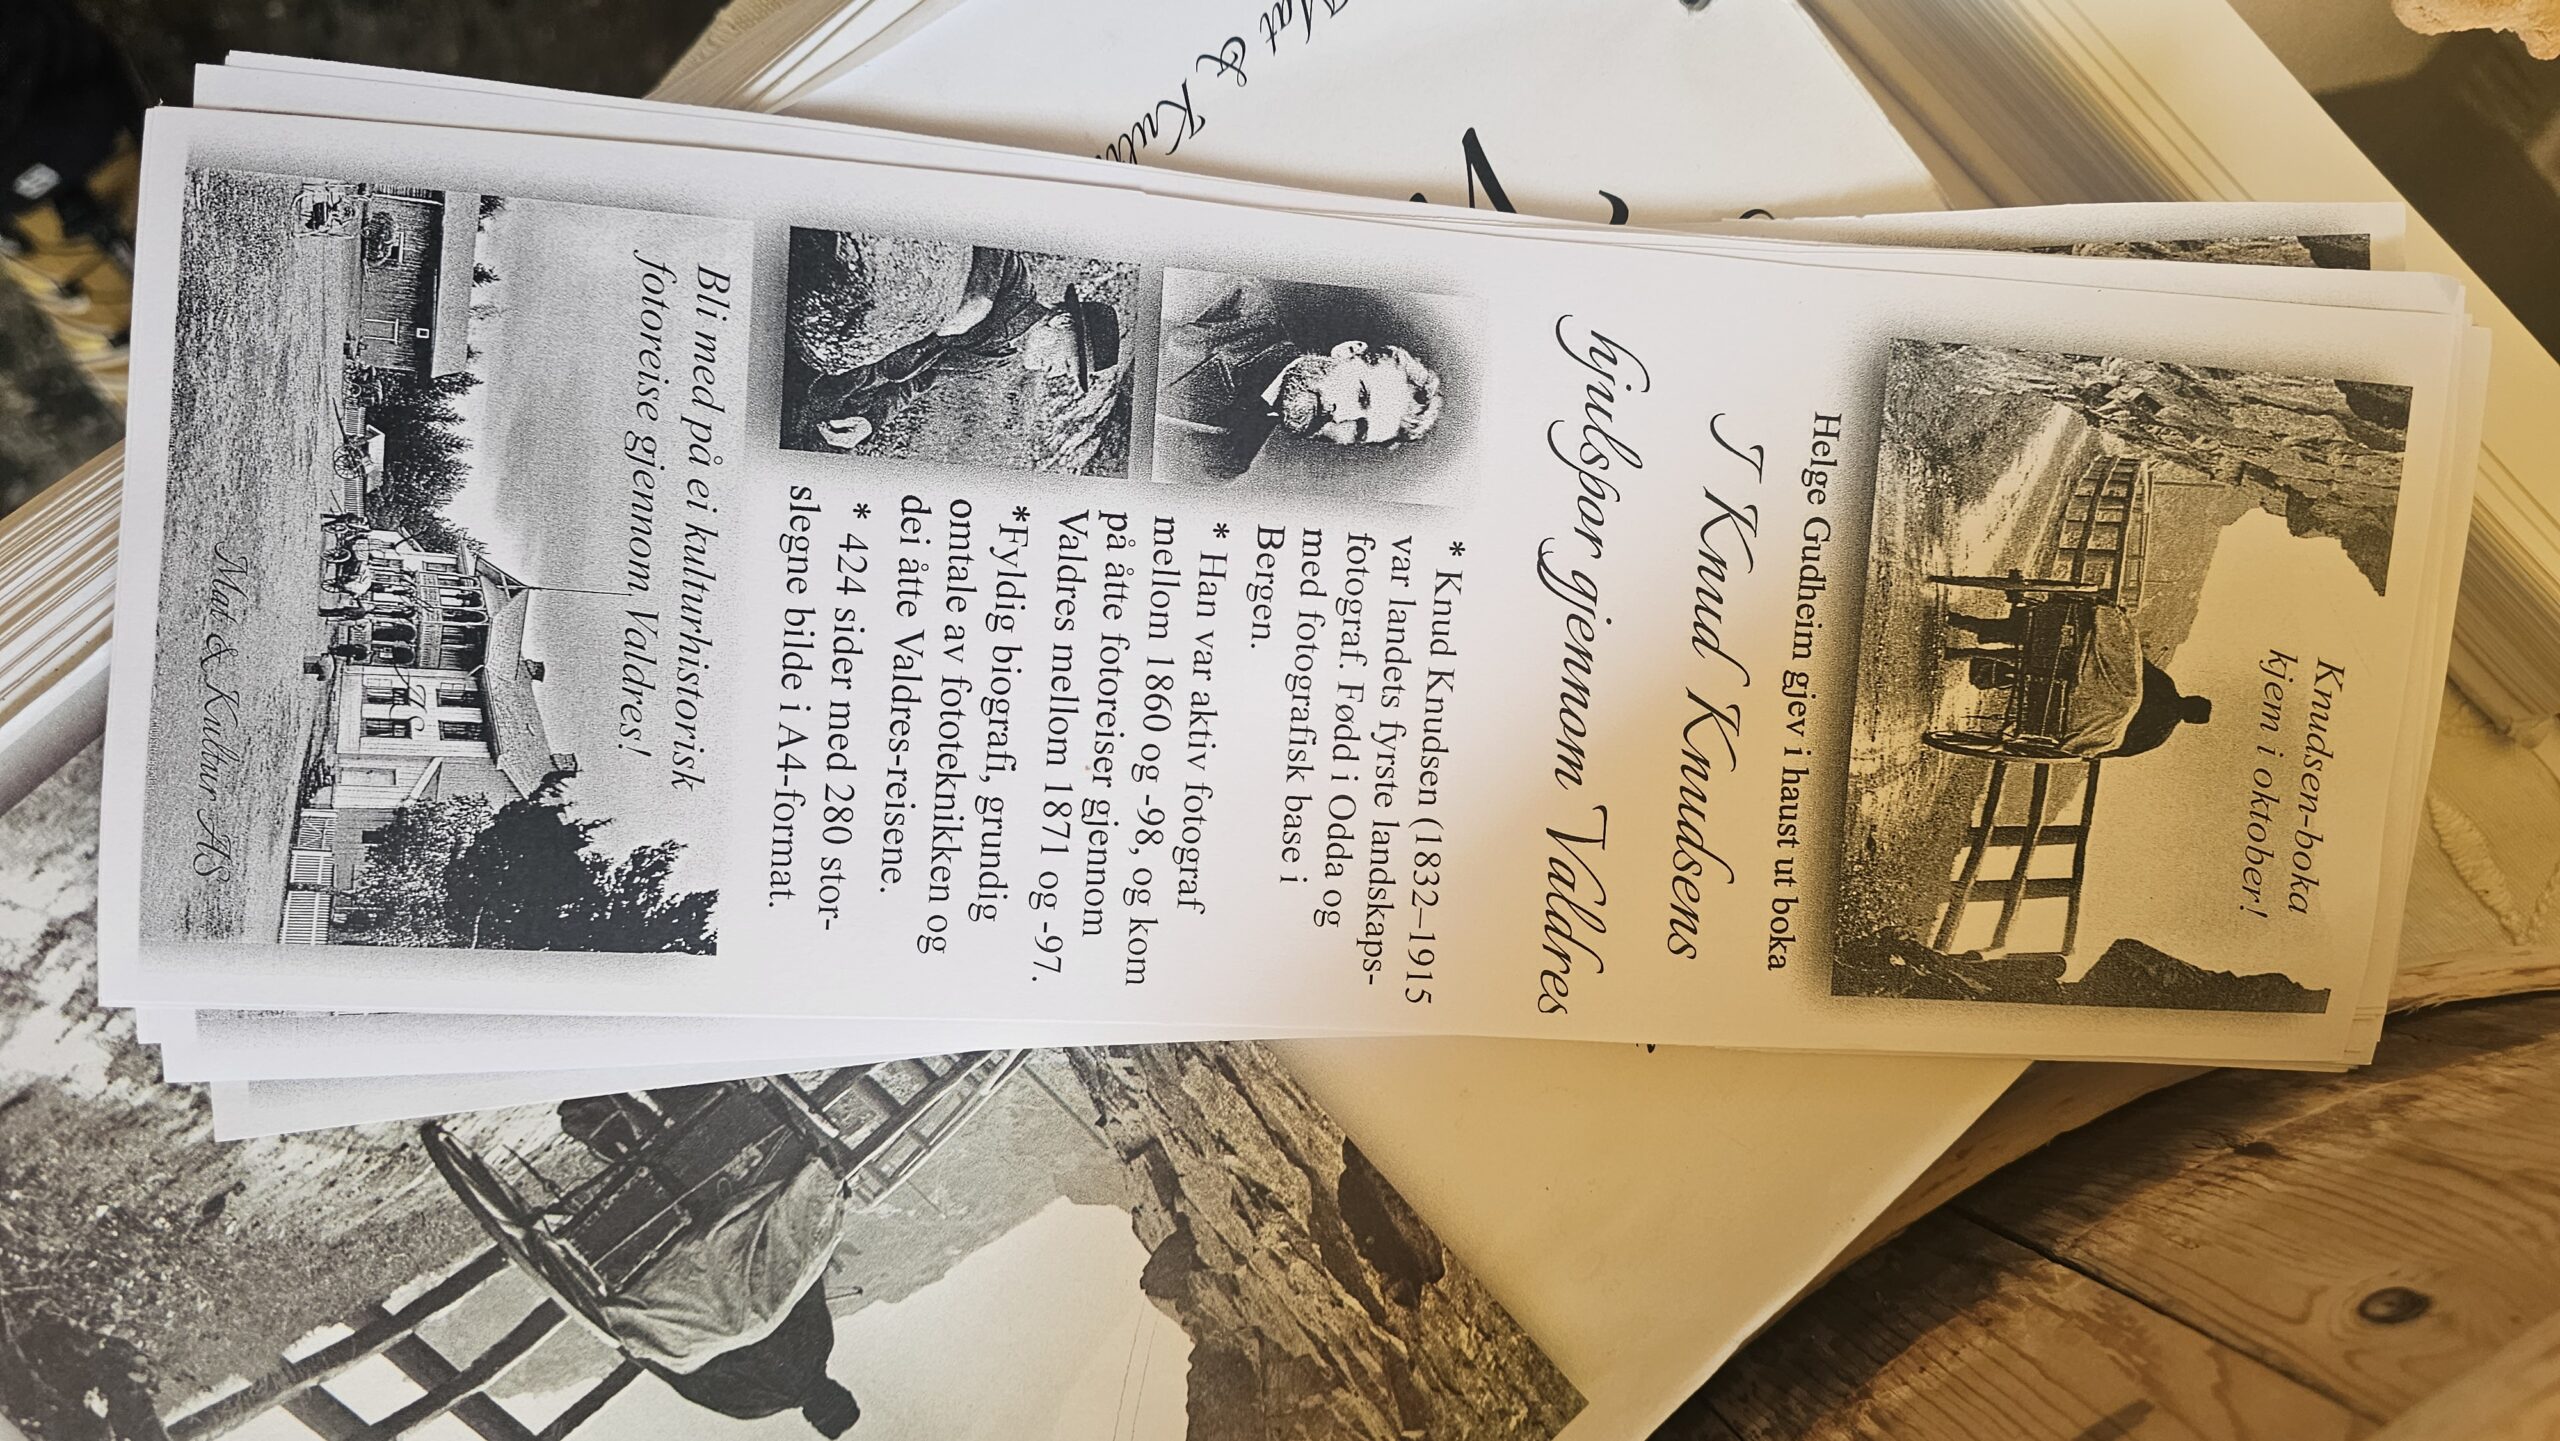 Knudsen-boka
kjem i oktober!
Helge Gudheim gjev i haust ut boka
I Knud Knudsens
hjulspor gjennom Valdres
* Knud Knudsen (1832–1915
var landets fyrste landskaps-
fotograf. Fødd i Odda og
med fotografisk base i
Bergen.
* Han var aktiv fotograf
mellom 1860 og -98, og kom
på åtte fotoreiser gjennom
Valdres mellom 1871 og -97.
*Fyldig biografi, grundig
omtale av fototeknikken og
dei åtte Valdres-reisene.
* 424 sider med 280 stor-
slegne bilde i A4-format.
Bli med på ei kulturhistorisk
fotoreise gjennom Valdres!
Mat & Kultur AS
Mat & Kult